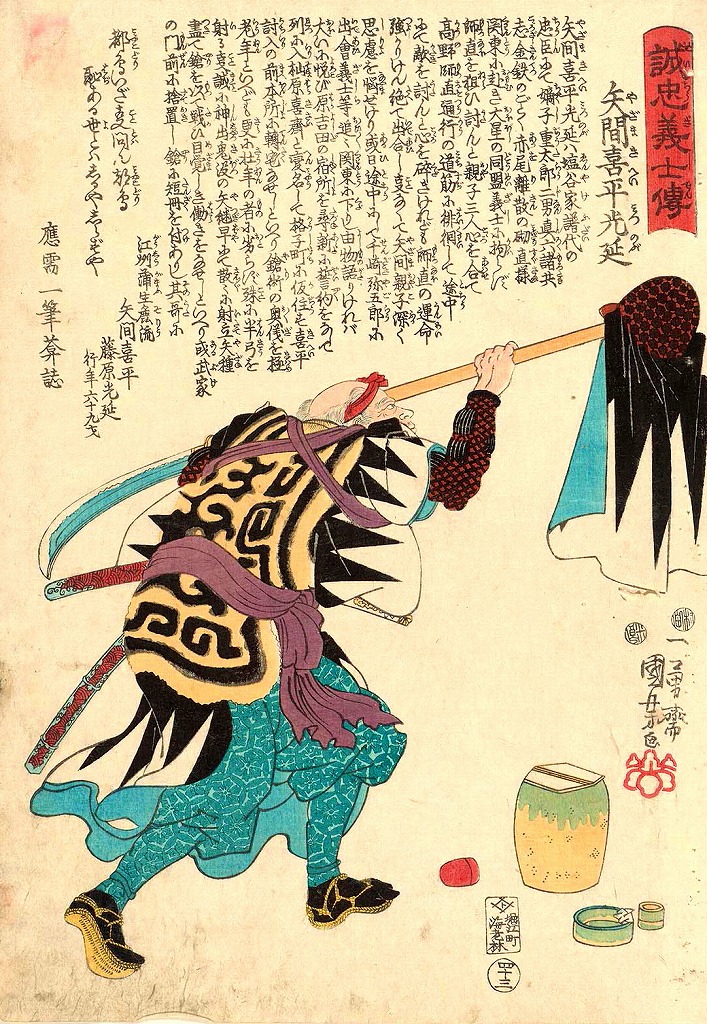 誠忠義士傳
矢間喜平光延
やざまきへいみつのぶ
矢間喜平光延ハ塩谷家譜代の
忠臣にて嫡子重太郎二男真六諸共
志金鉄のごとく赤尾離散の砌直様
関東に赴き大星の同盟義士に拘らず
師直を狙ひ討んと親子三人心を合て
高野師直通行の道筋に徘徊して途中
にて敵を討んと心を砕きけれども師直の運命
強かりけん絶て出合事なくて矢間親子深く
思慮を悩せけり或日途中にて千崎弥五郎に
出會義士等追々関東に下りし由物語りければ
大いに悦び原吉田の宿所を尋
列に入杣原喜齋と変名して格子町に仮住す喜平
討入の前本所に轉宅なせしといへり鎗術の奥儀を極
老年といへども更に壮年の者に劣らず殊に半弓を
射る事誠に神出鬼没の矢継早にて散々に射立矢種
盡て鎗を以て戦ひ目覚しき働きをなせしといへり或武家
の門前に捨置し鎗に短冊を付あり其哥に
都鳥いざ言問ん
ある世とハしるやしらずや
江州蒲生庶流
矢間喜平
藤原光延
行年六十九才
應需一筆菴誌
一勇齋
國芳画
堀江町
海老林
四十三